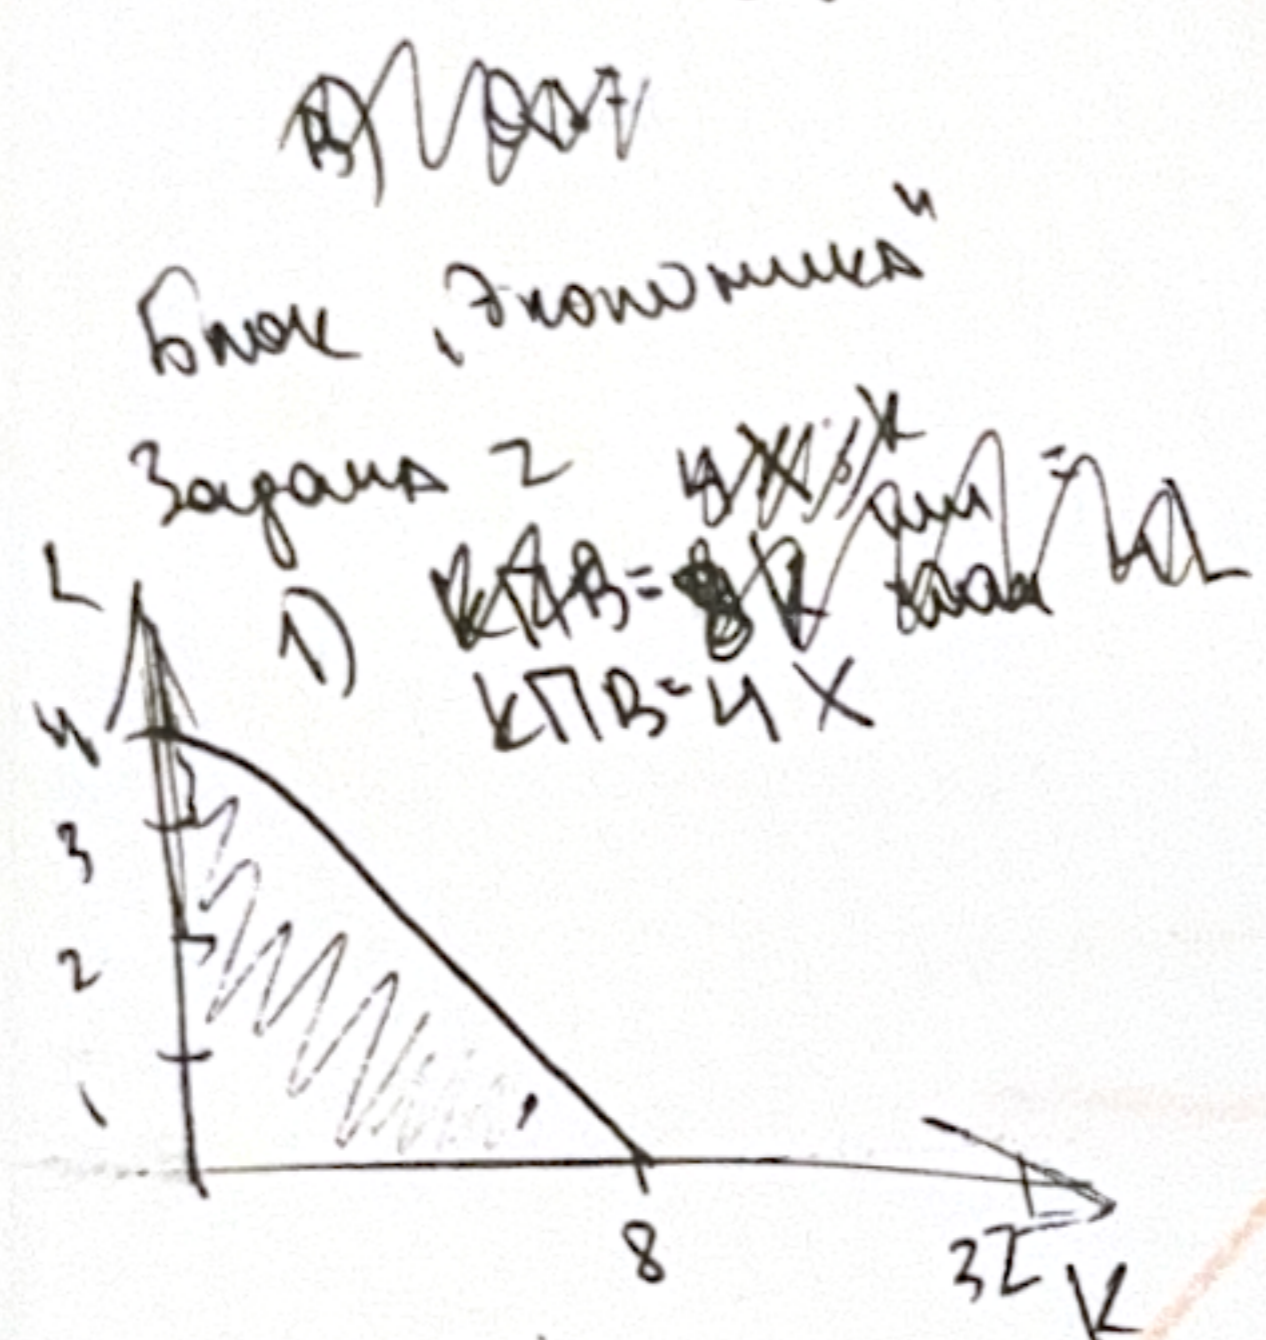 Блок „Экономика“
Задача 2
1)
КПВ=
КПВ=4X
L
4
3
2
1
8
32
K